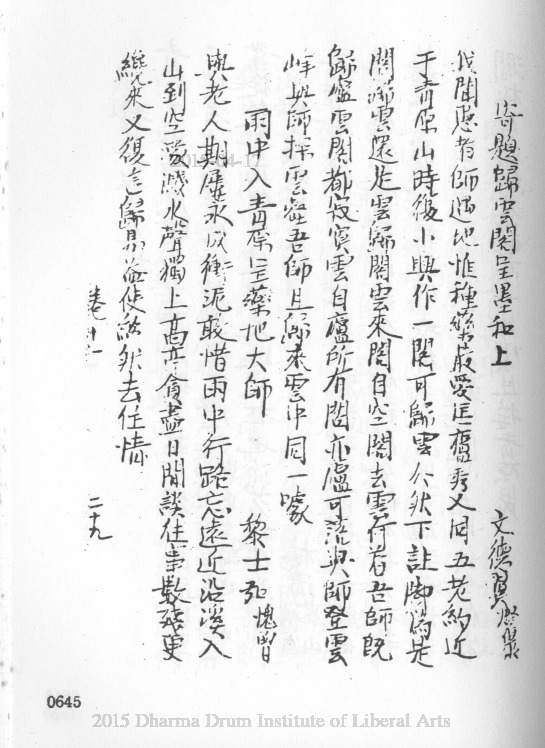 寄題歸雲閣呈墨和上 文德翼燈巖
我聞愚者師過地惟種藥最愛匡廬秀又因五老約近
于青原山時復小興作一閣可歸雲公然下註腳為是
閣歸雲還是雲歸閣雲來閣自空閣去雲何着吾師既
歸廬雲閣都寂寞雲自廬所有閣亦廬可落與師登雲
峰與師探雲壑吾師且歸來雲中同一噱
雨中入青原呈藥地大師 黎士弘愧曾
與老人期屢未成衝泥敢惜雨中行路忘遠近沿溪入
山到空濛濺水聲獨上高亭貪盡日閒談往事數殘更
纔來又復言歸易益使紛然去住情
卷十一 二十九
0645
2015 Dharma Drum Institute of Liberal Arts